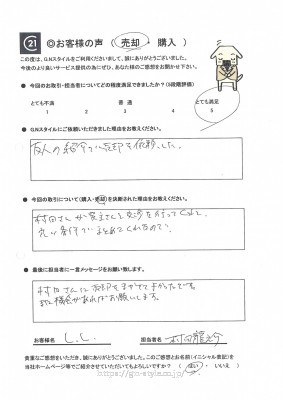 21 ◎お客様の声 ( 売却 ・ 購入 )
この度は、G.Nスタイルをご利用くださいまして、誠にありがとうございました。
今後のより良いサービス提供の為にぜひ、あなた様のご感想をお聞かせ下さい。
● 今回のお取引・担当者についてどの程度満足できましたか？(5段階評価)
とても不満 普 通 とても満足
1 2 3 4 5
● G.Nスタイルにご依頼いただきました理由をお教えください。
友人の紹介で売却を依頼した。
● 今回の取引について(購入・売却)を決断された理由をお教えください。
村田さんが買主さんと交渉を行ってくれ
良い条件でまとめてくれたので。
● 最後に担当者に一言メッセージをお願い致します。
村田さんに売却をまかせてよかったです。
また機会があればお願いします。
お客様名 L.L. 担当者名 村田
貴重なご感想をいただき、誠にありがとうございました。このご感想とお名前(イニシャル表記)を
当社ホームページ等でご紹介させていただいてもよろしいですか？ ( はい ・ いいえ )